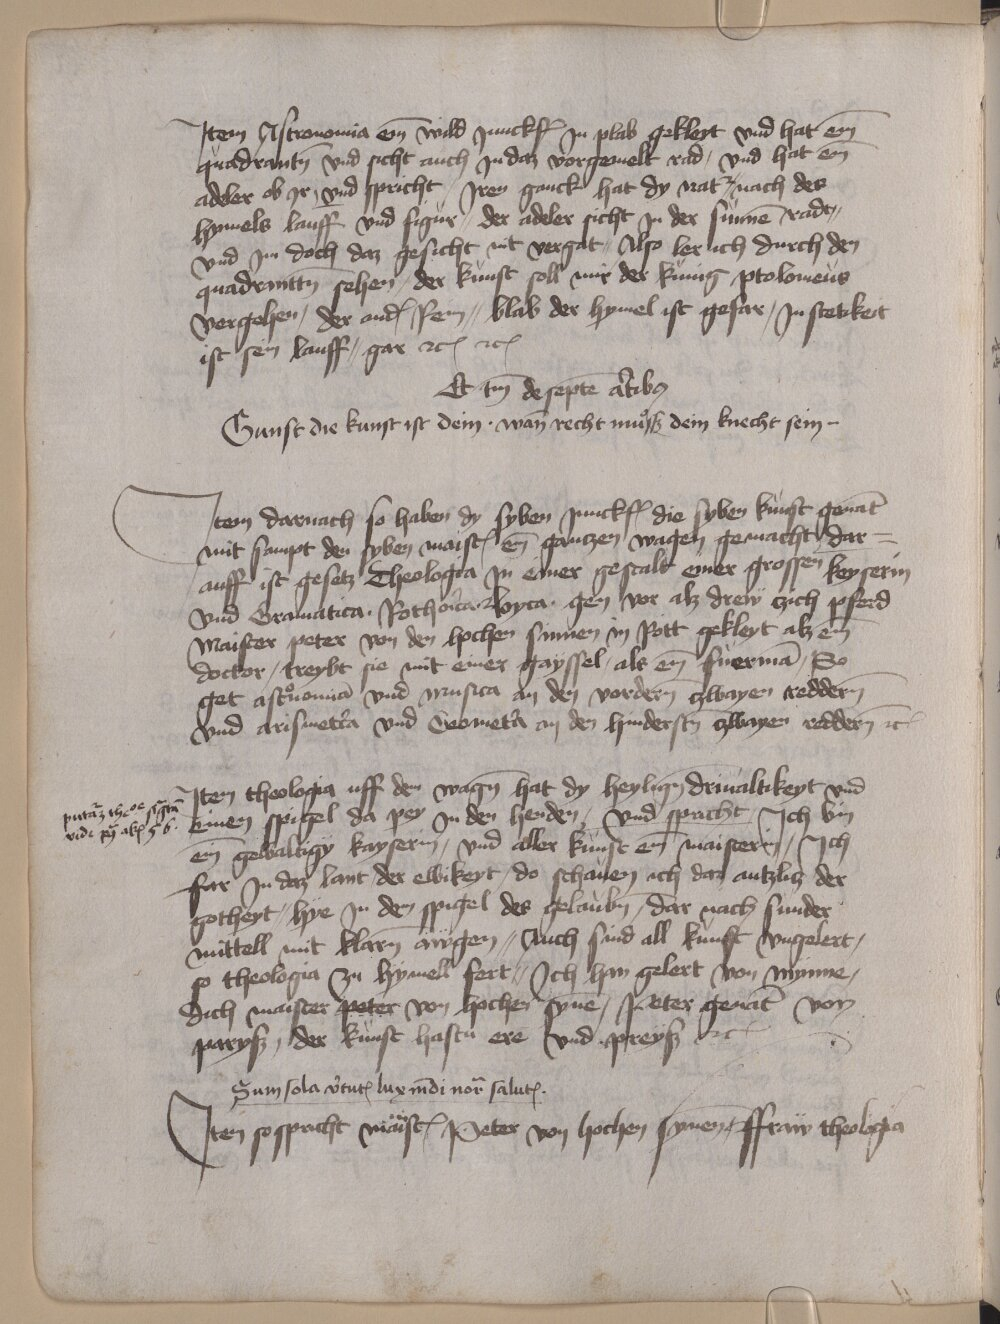 Item Astronomia ein wild junckf in plab gekleyt vnd hat ein
quadrantn vnd sicht auch in daz vorgemelt rad, vnd hat ein
adeler ob ir, vnd spricht, Iren ganck hat dy natr nach des
hymels lauff vnd figur, der adeler sicht in der sunne radt,
vnd im doch daz gesicht nit vergat, Also ler ich durch den
quadranttn sehen, der kunst soll mir der kunig ptolomeus
vergehen, der and Rem, blab der hymel ist gefar, In stetikeit
ist sein lauff, gar rc rc
Et tm de septe artibus
Gunst die kunst ist dein. wan recht muosz dein knecht sein
Item darnach so haben dy syben junckf die syben kunst genat
mit sampt den syben maist ein gantzen wagen gemacht dar=
auff ist gesetz Theologia in einer gestalt einer grossen keyserin
vnd Gramatica. Rethorica loyca. gen vor alz drew zich pferd
Maister peter von den hochen sinnen in Rott gekleyt alz ein
doctor, treybt sie mit einer gayssel, als ein fuerma, So
get astronomia vnd musica an den vordern zwayen reddern
vnd arismetca vnd Geometra an den hinderstn zwayen reddern rc
Item theologia uff den wagn hat dy heylign driualtikeyt vnd
einen spigel da pey in den henden, vnd spracht, Ich bin
ein gewaltigy kayserin, vnd aller kunst ein maisterin, Ich
far in daz lant der ewikeyt, do schauen ich daz antzlitz der
gotheyt, hye in den spigel des gelaubn, dar nach sunder
mittell mit klarn awgen, Auch sind all kunst vngelert,
so theologia zu hymell fert, Ich han gelert von mynne,
dich maister peter von hochen syne, Peter genat von
parysz, der kunst hastu ere vnd preysz rc
Sum sola vtut lux mdi nor salut.
Item so spricht maist Peter von hochen synen, ffraw theologia